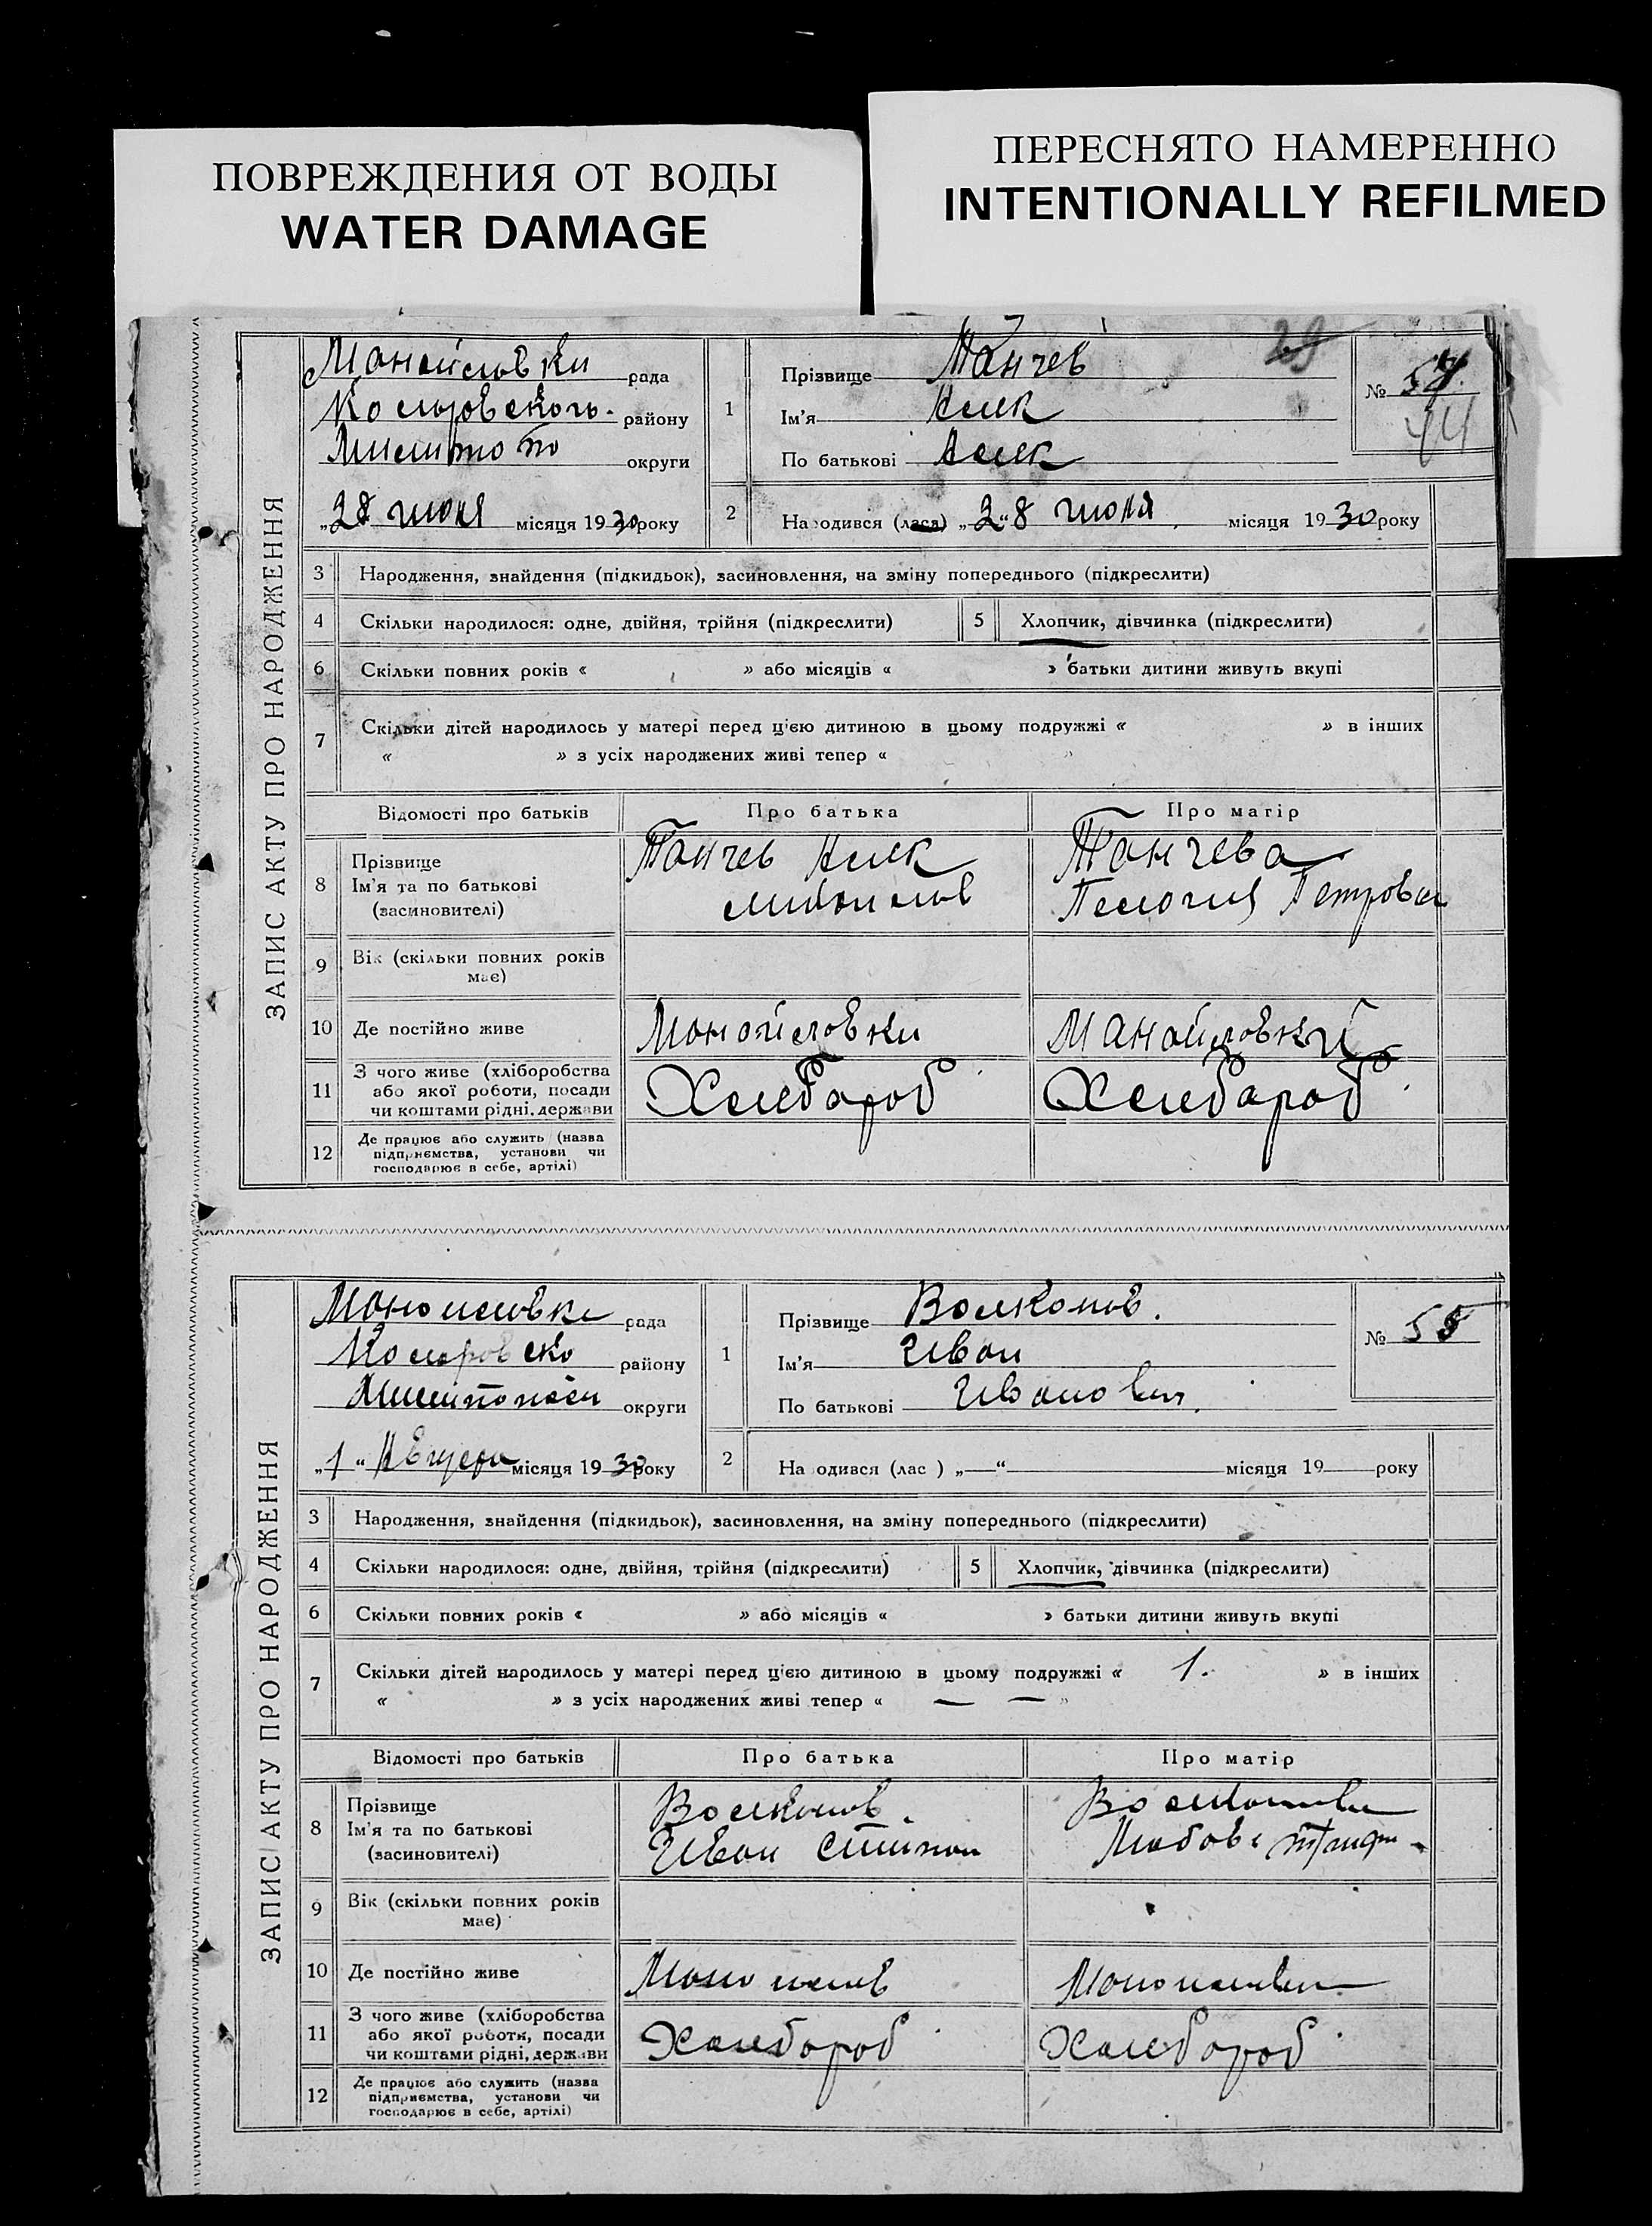 ПОВРЕЖДЕНИЯ ОТ ВОДЫ
WATER DAMAGE
ПЕРЕСНЯТО НАМЕРЕННО
INTENTIONALLY REFILMED
ЗАПИС АКТУ ПРО НАРОДЖЕННЯ
Манойловки рада
району
округи
„28 июня місяця 1930року
1
Прізвище Танчев
Ім'я
По батькові
29
№ 57.
44
2 Народився (лася) „2“8 июня місяця 1930року
3 Народження, знайдення (підкидьок), засиновлення, на зміну попереднього (підкреслити)
4 Скільки народилося: одне, двійня, трійня (підкреслити) 5 Хлопчик, дівчинка (підкреслити)
6 Скільки повних років « » або місяців « » батьки дитини живуть вкупі
7 Скільки дітей народилось у матері перед цією дитиною в цьому подружжі « » в інших
« » з усіх народжених живі тепер « »
Відомості про батьків Про батька Про матір
8 Прізвище
Ім'я та по батькові
(засновителі)
Танчев
Танчева
Пелогия Петровн
9 Вік (скільки повних років
має)
10 Де постійно живе Монойловки Манойловкй
11 З чого живе (хліборобства
або якої роботи, посади
чи коштами рідні, держави
Хлебороб Хлебароб
12 Де працює або служить (назва
підприємства, установи чи
господарює в себе, артілі)
ЗАПИС АКТУ ПРО НАРОДЖЕННЯ
рада
району
округи
„1“ Августа місяця 1930року
1
Прізвище Волконов.
Ім'я Иван
По батькові Иванович.
№ 58
2 На одився (лас ) „ “ місяця 19 року
3 Народження, знайдення (підкидьок), засиновлення, на зміну попереднього (підкреслити)
4 Скільки народилося: одне, двійня, трійня (підкреслити) 5 Хлопчик, дівчинка (підкреслити)
6 Скільки повних років « » або місяців « » батьки дитини живуть вкупі
7 Скільки дітей народилось у матері перед цією дитиною в цьому подружжі « 1. » в інших
« » з усіх народжених живі тепер « — — »
Відомості про батьків Про батька Про матір
8 Прізвище
Ім'я та по батькові
(засиновителі)
Волконов.
Иван Степан
Любовь
9 Вік (скільки повних років
має)
10 Де постійно живе
11 З чого живе (хліборобства
або якої роботи, посади
чи коштами рідні, держави
Хлебороб Хлебороб
12 Де працює або служить (назва
підприємства, установи чи
господарює в себе, артілі)